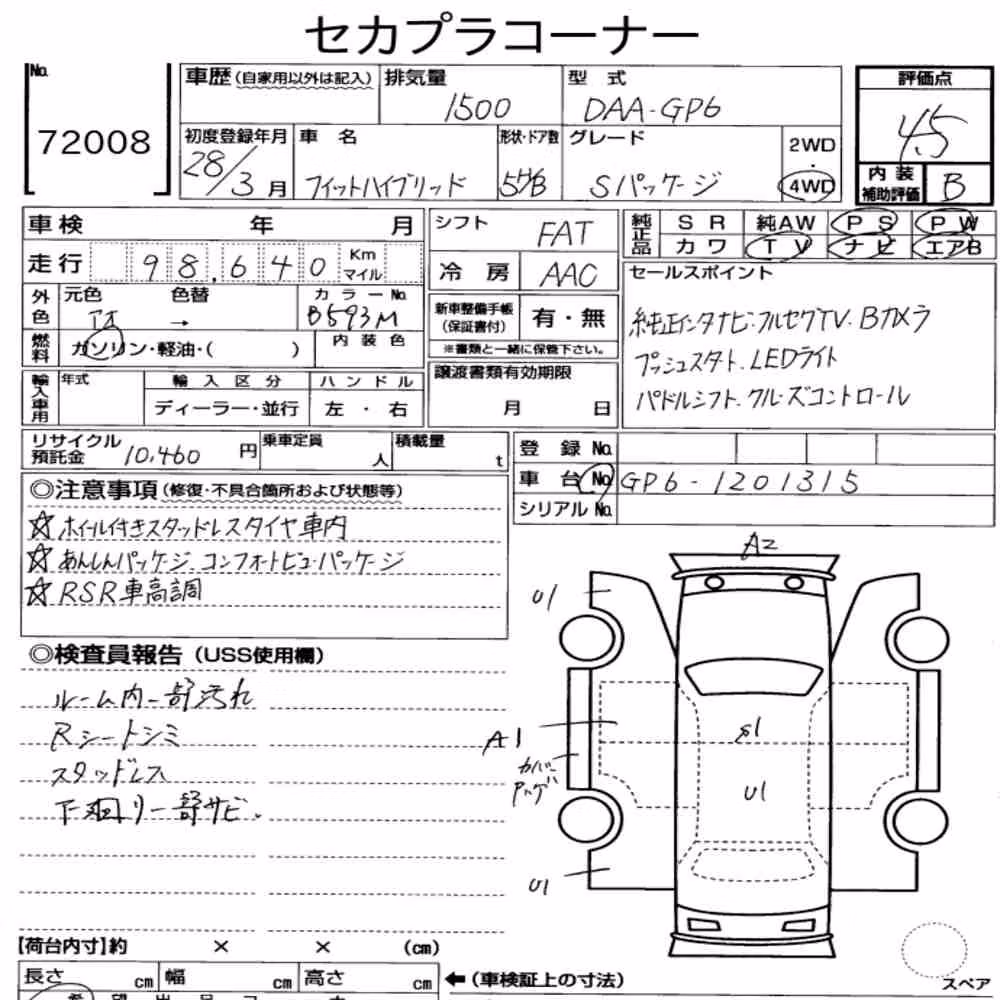 セカプラコーナー
No.
72008
車歴(自家用以外は記入)
排気量
1500
型 式
DAA-GP6
評価点
4.5
初度登録年月
28/3月
車 名
フィットハイブリッド
形状・ドア数
5HB
グレード
Sパッケージ
2WD
・
4WD
内装
補助評価
B
車検 年 月
シフト
FAT
純正品
SR 純AW PS PW
カワ TV ナビ エアB
走行 98,640 Km マイル
冷房 AAC
セールスポイント
純正インタナビ・フルセグTV・Bカメラ
プッシュスタート、LEDライト
パドルシフト、クルーズコントロール
外色
元色 色替 カラーNo.
→ B593M
新車整備手帳
(保証書付)
有・無
※書類と一緒に保管下さい。
燃料
ガソリン・軽油・( )
内装色
輸入車用
年式
輸入区分
ハンドル
ディーラー・並行
左・右
譲渡書類有効期限
月 日
リサイクル
預託金 10,460円
乗車定員
人
積載量
t
登録No.
車台No. GP6-1201315
シリアルNo.
◎注意事項(修復・不具合箇所および状態等)
☆ホイール付きスタッドレスタイヤ車内
☆あんしんパッケージ、コンフォートビューパッケージ
☆RSR車高調
◎検査員報告(USS使用欄)
ルーム内一部汚れ
Rシートシミ
スタッドレス
下廻り一部サビ.
A2
U1
A1
カバー
S1
U1
U1
【荷台内寸】約 × × (cm)
長さ cm 幅 cm 高さ cm
←(車検証上の寸法)
スペア